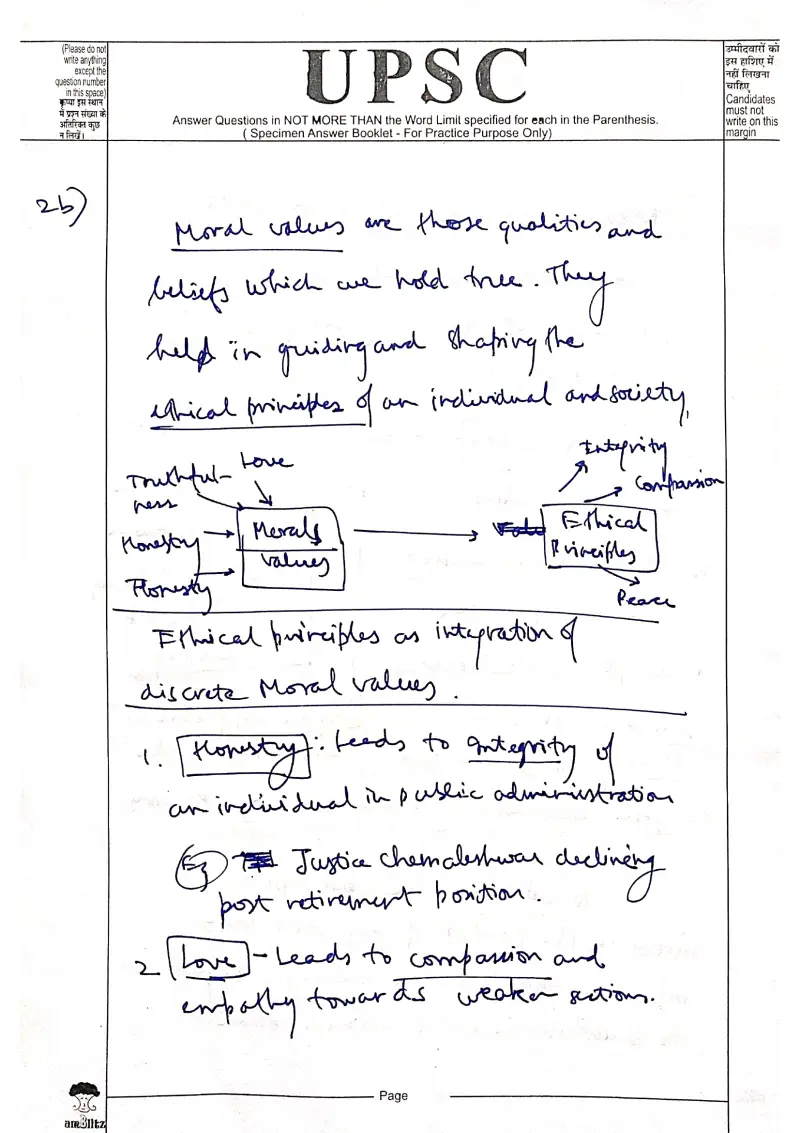 (Please do not
write anything
except the
question number
in this space)
कृप्या इस स्थान
में प्रश्न संख्या के
अतिरिक्त कुछ
न लिखें।
UPSC
Answer Questions in NOT MORE THAN the Word Limit specified for each in the Parenthesis.
( Specimen Answer Booklet - For Practice Purpose Only)
उम्मीदवारों को
इस हाशिए में
नहीं लिखना
चाहिए
Candidates
must not
write on this
margin
2b)
Moral values are those qualities and
beliefs which we hold true. They
help in guiding and shaping the
ethical principles of an individual and society,
Truthful-
ness
Love
Honestry
Honesty
Morals
Values
Ethical
Principles
Integrity
Compassion
Peace
Ethical principles as integration of
discrete Moral values.
1. Honestry: Leads to integrity of
an individual in public administration
Eg Justice chemaleshwar declining
post retirement position.
2 Love - Leads to compassion and
empathy towards weaker sections.
Page